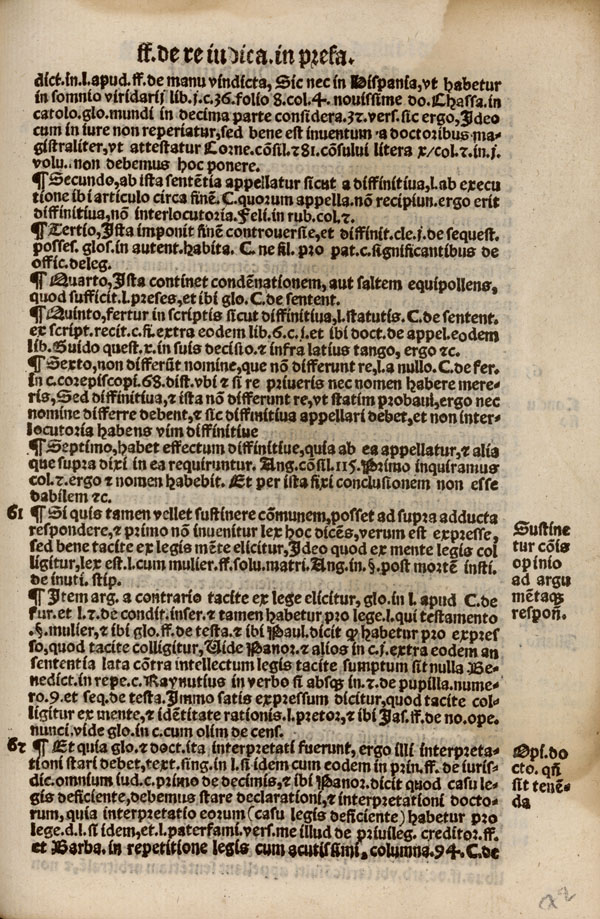 ff. de re iudica. in prefa.
dict. in. l. apud. ff. de manu vindicta, Sic nec in Hispania, vt habetur
in somnio viridarij lib. j. c. 36. folio 8. col. 4. nouissime do. Chassa. in
catolo. glo. mundi in decima parte considera. 32. vers. sic ergo, Ideo
cum in iure non reperiatur, sed bene est inuentum a doctoribus ma-
gistraliter, vt attestatur Corne. cōsil. 281. cōsului litera x/ col. 2. in. j.
volu.. non debemus hoc ponere.
¶ Secundo, ab ista sentētia appellatur sicut a diffinitiua, l. ab execu
tione ibi articulo circa finē. C. quorum appella. nō recipiun. ergo erit
diffinitiua, nō interlocutoria. Feli. in rub. col. 2.
¶ Tertio, Ista imponit finē controuersie, et diffinit. cle. j. de sequest.
posses. glos. in autent. habita. C. ne fil. pro pat. c. significantibus de
offic. deleg.
¶ Quarto, Ista continet condēnationem, aut saltem equipollens,
quod sufficit. l. preses, et ibi glo. C. de sentent.
¶ Quinto, fertur in scriptis sicut diffinitiua, l. statutis. C. de sentent.
ex script. recit. c. fi. extra eodem lib. 6. c. j. et ibi doct. de appel. eodem
lib. Guido quest. x. in suis decisio. ⁊ infra latius tango, ergo ⁊c.
¶ Sexto, non differūt nomine, que nō differunt re, l. a nullo. C. de fer.
in c. corepiscopi. 68. dist. vbi ⁊ si re priueris nec nomen habere mere-
ris, Sed diffinitiua, ⁊ ista nō differunt re, vt statim probaui, ergo nec
nomine differre debent, ⁊ sic diffinitiua appellari debet, et non inter-
locutoria habens vim diffinitiue
¶ Septimo, habet effectum diffinitiue, quia ab ea appellatur, ⁊ alia
que supra dixi in ea requiruntur. Ang. cōsil. 115. Primo inquiramus
col. 2. ergo ⁊ nomen habebit. Et per ista fixi conclusionem non esse
dabilem ⁊c.
61 ¶ Si quis tamen vellet sustinere cōmunem, posset ad supra adducta
respondere, ⁊ primo nō inuenitur lex hoc dicēs, verum est expresse,
sed bene tacite ex legis mēte elicitur, Ideo quod ex mente legis col
ligitur, lex est. l. cum mulier. ff. solu. matri. Ang. in. §. post mortē insti.
de inuti. stip.
Sustine
tur cōis
opinio
ad argu
mētaqꝫ
respoñ.
¶ Item arg. a contrario tacite ex lege elicitur, glo. in l. apud C. de
fur. et l. 2. de condit. inser. ⁊ tamen habetur pro lege. l. qui testamento
.§. mulier, ⁊ ibi glo. ff. de testa. ⁊ ibi Paul. dicit ꝙ habetur pro expres
so, quod tacite colligitur, Uide Panor. ⁊ alios in c. j. extra eodem an
sententia lata cōtra intellectum legis tacite sumptum sit nulla Be-
nedict. in repe. c. Raynutius in verbo si absqꝫ in. 2. de pupilla. nume-
ro. 9. et seq. de testa. Immo satis expressum dicitur, quod tacite col-
ligitur ex mente, ⁊ idētitate rationis. l. pretor, ⁊ ibi Jas. ff. de no. ope.
nunci. vide glo. in c. cum olim de cens.
62 ¶ Et quia glo. ⁊ doct. ita interpretati fuerunt, ergo illi interpreta-
tioni stari debet, text. sing. in l. si idem cum eodem in prin. ff. de iuris-
dic. omnium iud. c. primo de decimis, ⁊ ibi Panor. dicit quod casu le-
gis deficiente, debemus stare declarationi, ⁊ interpretationi docto-
rum, quia interpretatio eorum (casu legis deficiente) habetur pro
lege. d. l. si idem, et. l. paterfami. vers. me illud de priuileg. creditor. ff.
et Barba. in repetitione legis cum acutissimi, columna. 94. C. de
Opi. do
cto. qñ
sit tenē-
da